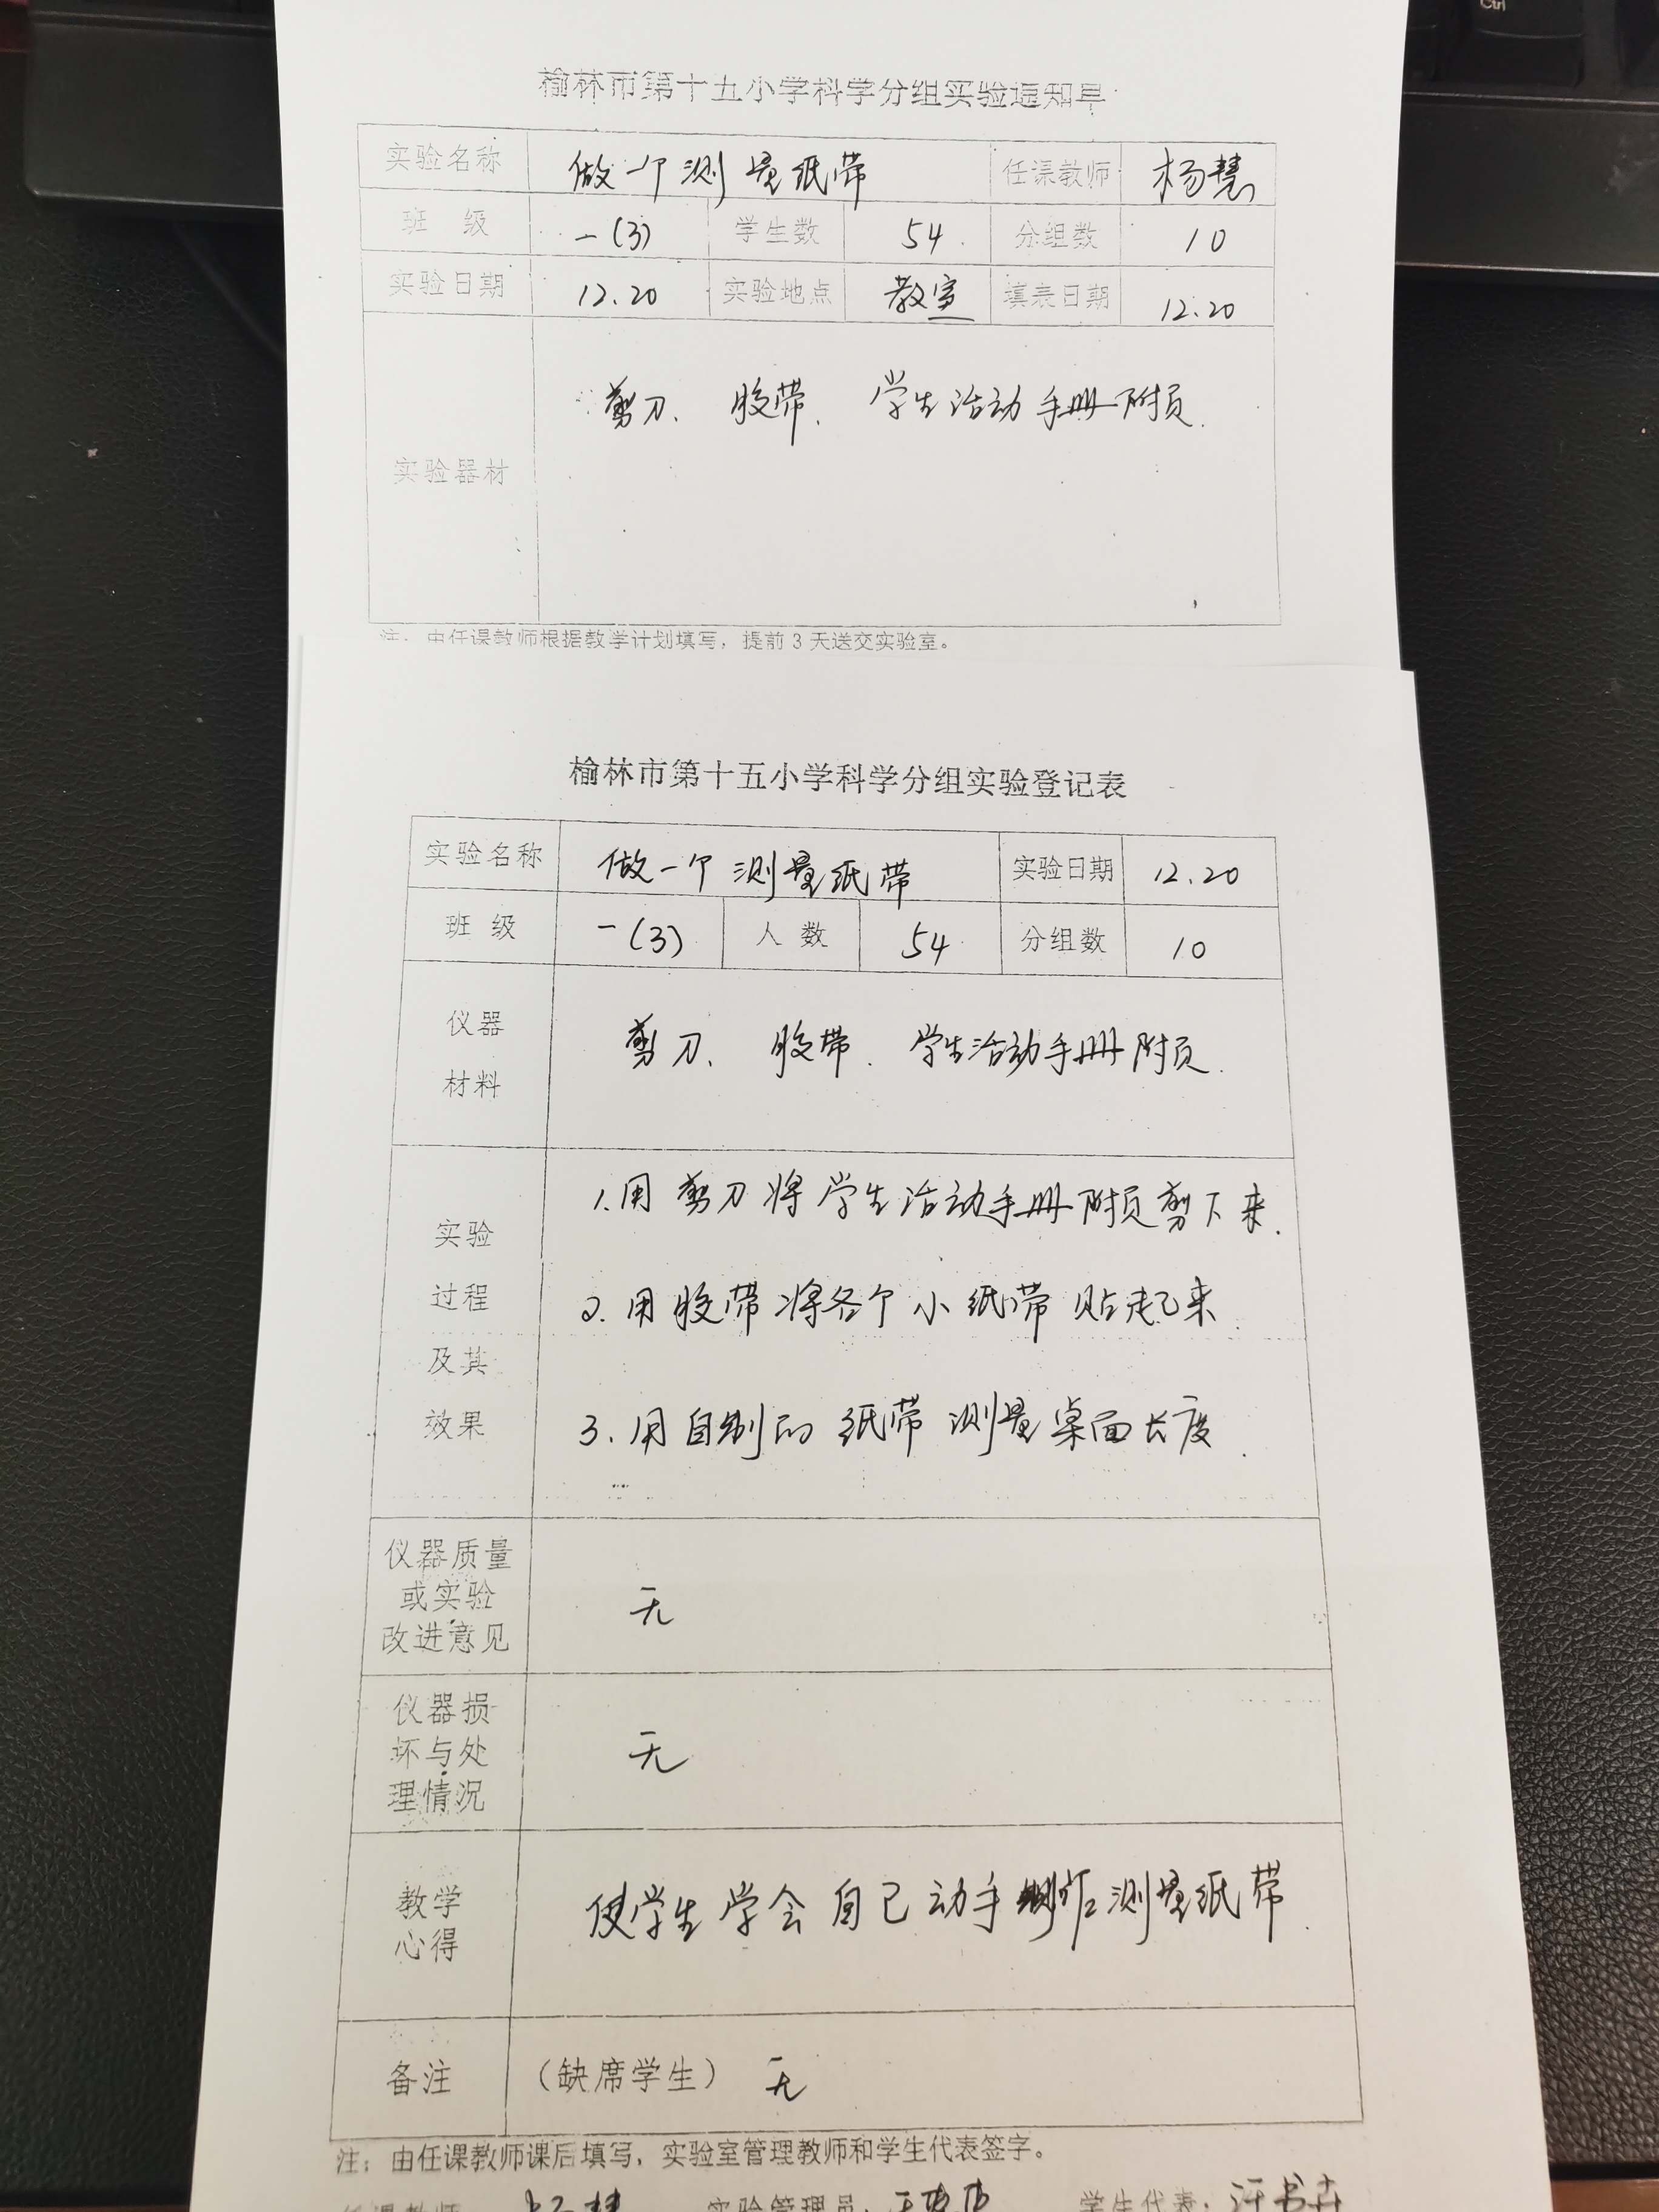 榆林市第十五小学科学分组实验通知单
实验名称 做一个测量纸带 任课教师 杨慧
班 级 一(3) 学生数 54 分组数 10
实验日期 12.20 实验地点 教室 填表日期 12.20
剪刀、 胶带、 学生活动手册附页.
实验器材
注：由任课教师根据教学计划填写，提前 3 天送交实验室。
榆林市第十五小学科学分组实验登记表
实验名称 做一个测量纸带 实验日期 12.20
班 级 一(3) 人 数 54 分组数 10
仪器
材料
剪刀、 胶带、 学生活动手册附页.
实验
过程
及其
效果
1.用剪刀将学生活动手册附页剪下来.
2.用胶带将各个小纸带贴起来.
3.用自制的纸带测量桌面长度.
仪器质量
或实验
改进意见
无
仪器损
坏与处
理情况
无
教学
心得
使学生学会自己动手制作测量纸带.
备注 （缺席学生） 无
注：由任课教师课后填写，实验室管理教师和学生代表签字。
任课教师 杨慧 实验管理员： 学生代表：